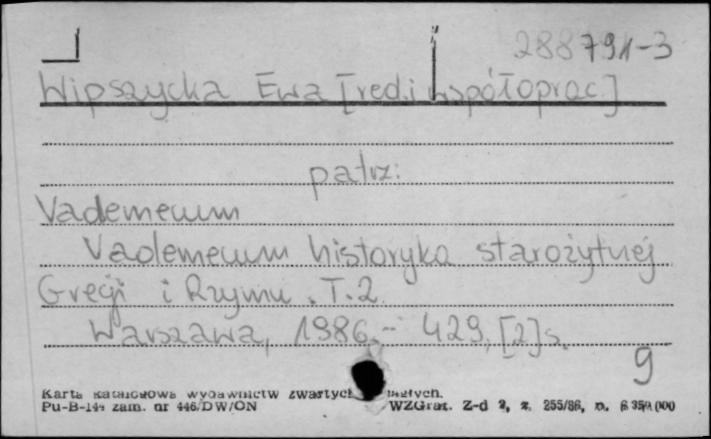 288791-3
Wipszycka Ewa [red.i współoprac.]
patrz:
Vademecum
Vademecum historyka starożytnej
Grecji i Rzymu. T.2.
Warszawa, 1986.- 429, [2]s.
9
Karta katalogowa wydawnictw zwartych i ciągłych.
Pu-B-144 zam. nr 446/DW/ON WZGraf. Z-d 2, z. 255/86, n.